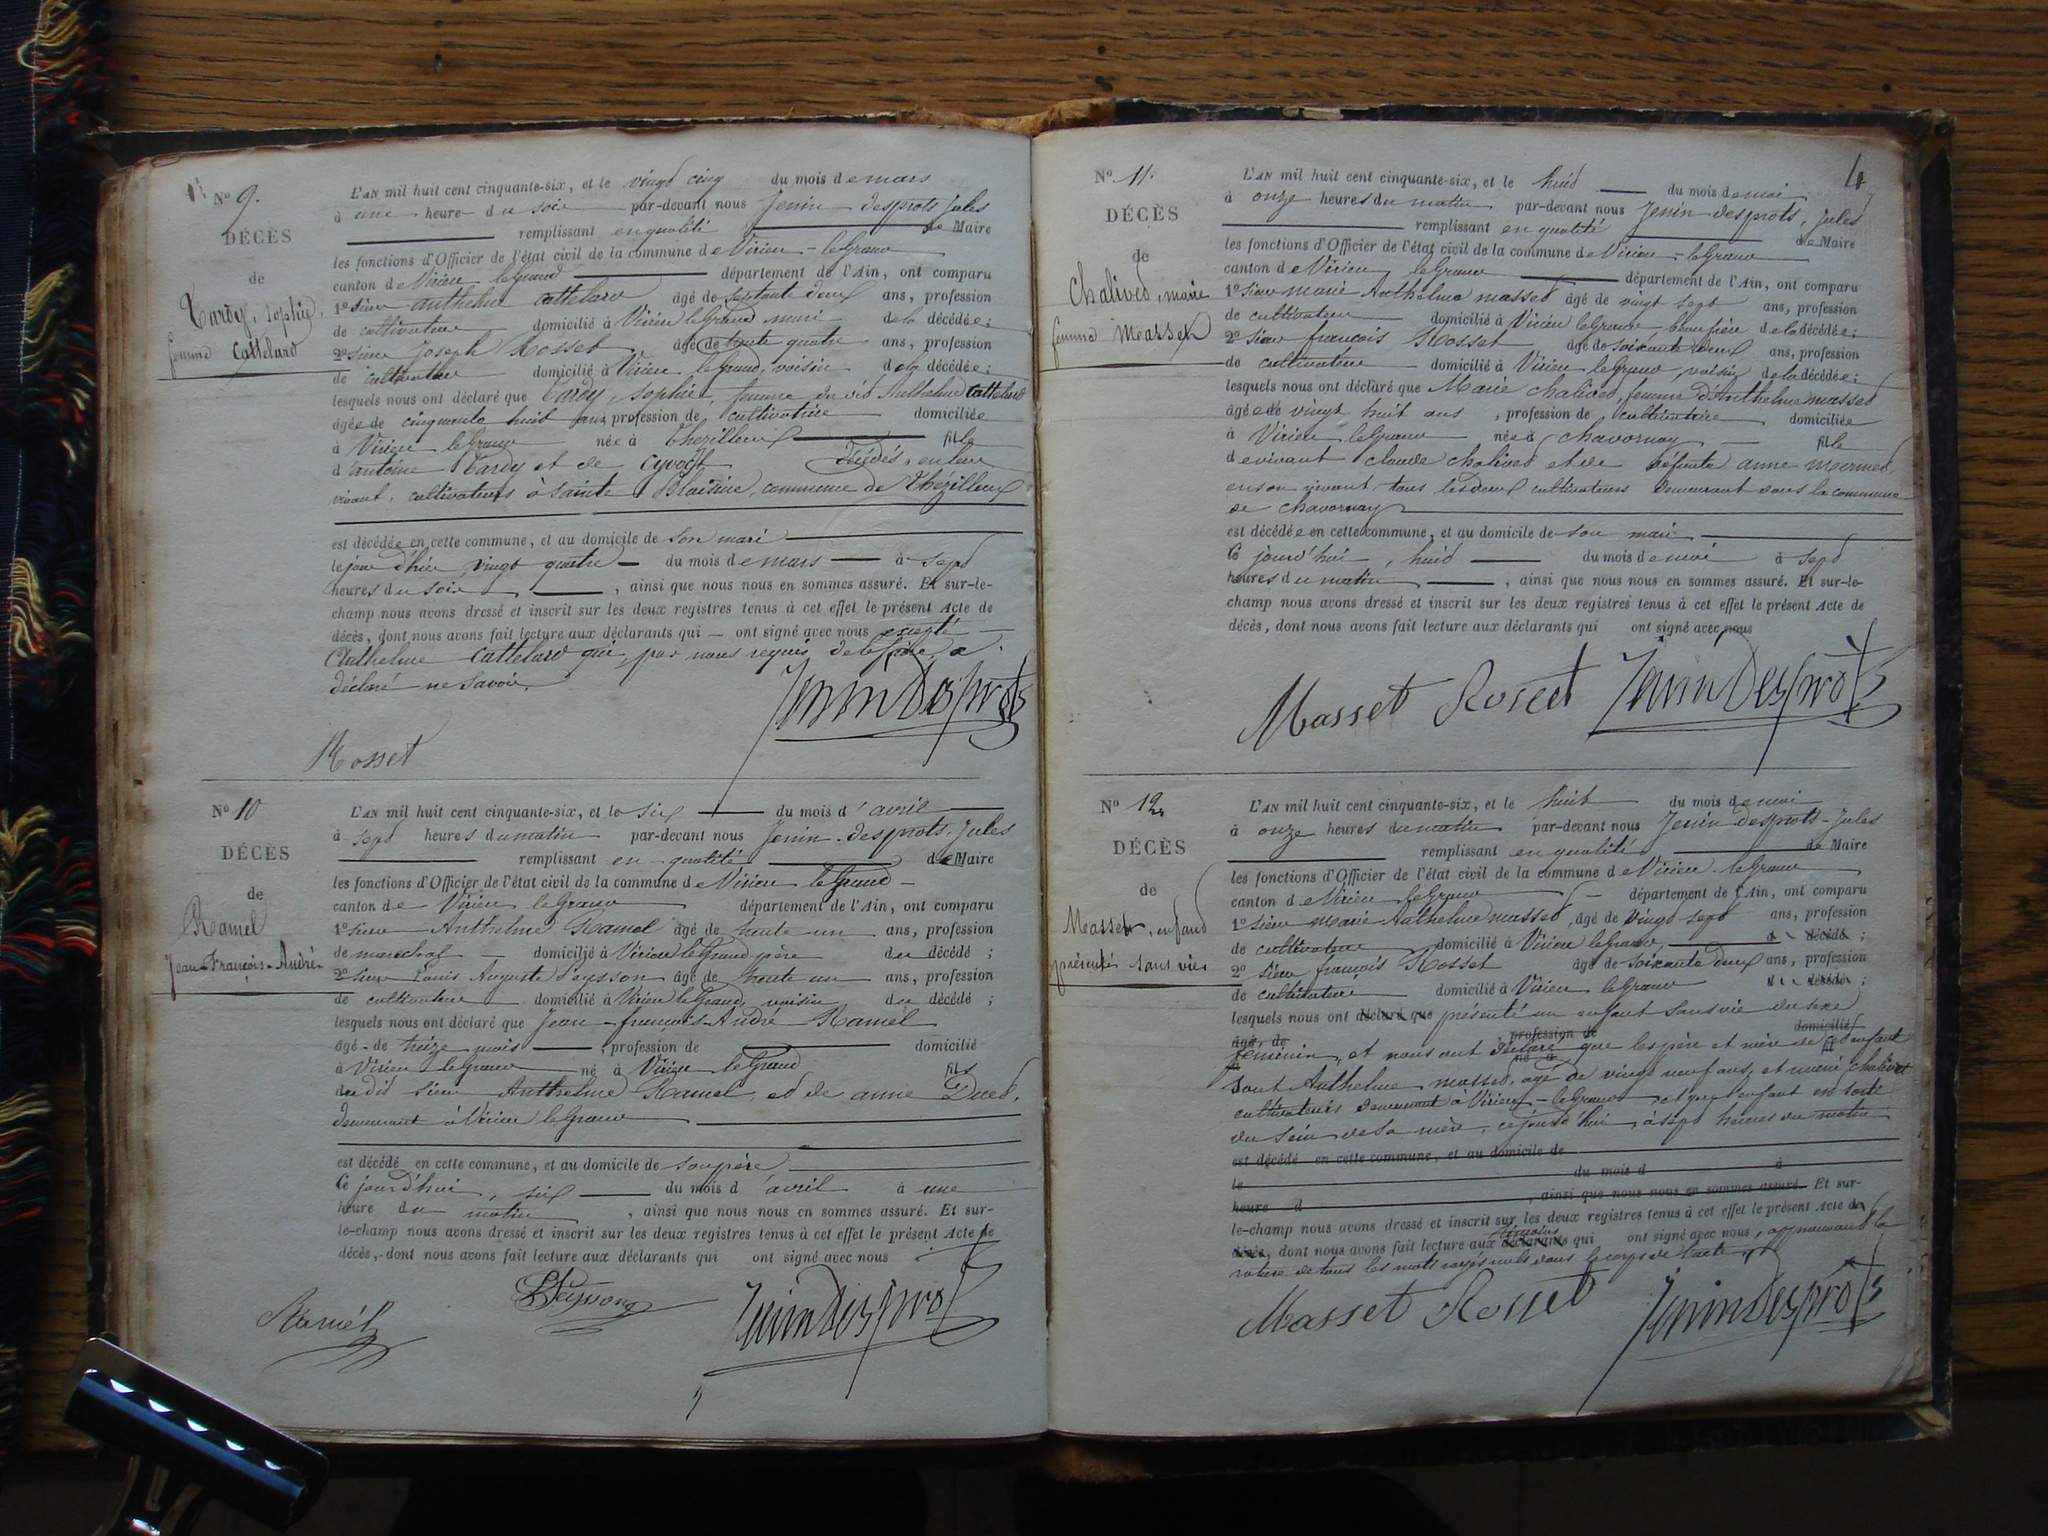 No 9.
DÉCÈS
de
Tardy, Sophie,
femme Cattelard
L'AN mil huit cent cinquante-six, et le vingt cinq du mois de mars
à une heure du soir par-devant nous Jenin desprots Jules
remplissant en qualité de Maire
les fonctions d'Officier de l'état civil de la commune de Virieu-le Grand
canton de Virieu le Grand département de l'Ain, ont comparu
1º sieur anthelme Cattelard âgé de septante deux ans, profession
de cultivateur domicilié à Virieu le Grand mari de la décédée;
2º sieur Joseph Rosset âgé de trente quatre ans, profession
de cultivateur domicilié à Virieu le Grand, voisin de la décédée;
lesquels nous ont déclaré que Tardy, Sophie, femme du dit Anthelme Cattelard
âgée de cinquante huit ans, profession de cultivatrice domiciliée
à Virieu le Grand née à Thezillieux fille
d'antoine Tardy et de Cyvoct décédés, en leur
vivant, cultivateurs à Sainte Blaisine, commune de Thézillieux
est décédée en cette commune, et au domicile de son mari
le jour d'hier, vingt quatre du mois de mars à sept
heures du soir, ainsi que nous nous en sommes assuré. Et sur-le-
champ nous avons dressé et inscrit sur les deux registres tenus à cet effet le présent Acte de
décès, dont nous avons fait lecture aux déclarants qui ont signé avec nous excepté
Anthelme Cattelard qui, par nous requis de le faire, a
déclaré ne savoir.
Jenin Desprots
Rosset
No 10
DÉCÈS
de
Ramel
Jean-François-André
L'AN mil huit cent cinquante-six, et le six du mois d'avril
à sept heures du matin par-devant nous Jenin-desprots, Jules
remplissant en qualité de Maire
les fonctions d'Officier de l'état civil de la commune de Virieu le Grand
canton de Virieu le Grand département de l'Ain, ont comparu
1º sieur Anthelme Ramel âgé de trente un ans, profession
de marechal domicilié à Virieu le Grand père du décédé;
2º sieur Louis Auguste Peysson âgé de trente un ans, profession
de cultivateur domicilié à Virieu le Grand, voisin du décédé;
lesquels nous ont déclaré que Jean-françois-André Ramel
âgé de treize mois, profession de domicilié
à Virieu le Grand né à Virieu le Grand fils
du dit sieur Anthelme Ramel, et de anne
demeurant à Virieu le Grand
est décédé en cette commune, et au domicile de son père
Ce jourd'hui, six du mois d'avril à une
heure du matin, ainsi que nous nous en sommes assuré. Et sur-
le-champ nous avons dressé et inscrit sur les deux registres tenus à cet effet le présent Acte de
décès, dont nous avons fait lecture aux déclarants qui ont signé avec nous
Ramel
Peysson
Jenin Desprots
4
No 11.
DÉCÈS
de
Chalived, marie
femme Masset
L'AN mil huit cent cinquante-six, et le huit du mois de mai
à onze heures du matin par-devant nous Jenin desprots, Jules
remplissant en qualité de Maire
les fonctions d'Officier de l'état civil de la commune de Virieu-le Grand
canton de Virieu le Grand département de l'Ain, ont comparu
1º sieur Marie Anthelme masset âgé de vingt sept ans, profession
de cultivateur domicilié à Virieu le Grand beau frère de la décédée;
2º sieur françois Rosset âgé de soixante deux ans, profession
de cultivateur domicilié à Virieu le Grand, voisin de la décédée;
lesquels nous ont déclaré que Marie Chalived, femme d'Anthelme masset
âgée de vingt huit ans, profession de cultivatrice domiciliée
à Virieu le Grand née à Chavornay fille
de vivant Claude Chalived et de défunte anne mermet
en son vivant tous les deux cultivateurs demeurant dans la commune
de Chavornay
est décédée en cette commune, et au domicile de son mari
Ce jourd'hui, huit du mois de mai à sept
heures du matin, ainsi que nous nous en sommes assuré. Et sur-le-
champ nous avons dressé et inscrit sur les deux registres tenus à cet effet le présent Acte de
décès, dont nous avons fait lecture aux déclarants qui ont signé avec nous
Masset Rosset Jenin Desprots
No 12
DÉCÈS
de
Masset, enfant
présenté sans vie
L'AN mil huit cent cinquante-six, et le huit du mois de mai
à onze heures du matin par-devant nous Jenin desprots Jules
remplissant en qualité de Maire
les fonctions d'Officier de l'état civil de la commune de Virieu-le Grand
canton de Virieu le Grand département de l'Ain, ont comparu
1º sieur Marie Anthelme masset, âgé de vingt sept ans, profession
de cultivateur domicilié à Virieu le Grand d décédé;
2º sieur françois Rosset âgé de soixante deux ans, profession
de cultivateur domicilié à Virieu le Grand d décédé;
lesquels nous ont déclaré que présenté un enfant sans vie du sexe
âgé de profession de domicilié
féminin, et nous ont déclaré que les père et mère de cet enfant
né à fil
sont Anthelme masset, agé de vingt neuf ans, et marie chalived
cultivateurs demeurant à Virieu-le Grand, et que l'enfant est sorti
du sein de sa mère, ce jourd'hui, à sept heures du matin
est décédé en cette commune, et au domicile de
le du mois d à
heure d, ainsi que nous nous en sommes assuré. Et sur-
le-champ nous avons dressé et inscrit sur les deux registres tenus à cet effet le présent Acte de
témoins
décès, dont nous avons fait lecture aux déclarants qui ont signé avec nous, approuvant la
rature de tous les mots rayés nuls dans le corps de l'acte
Masset Rosset Jenin Desprots